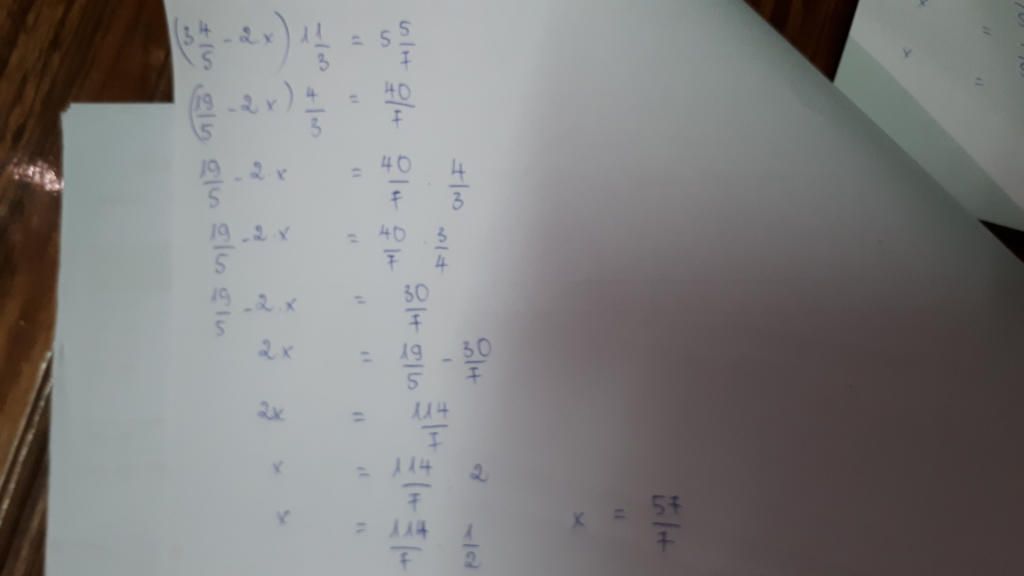 (3 4/5 - 2x) 1 1/3 = 5 5/7
(19/5 - 2x) 4/3 = 40/7
19/5 - 2.x = 40/7 . 4/3
19/5 - 2.x = 40/7 . 3/4
19/5 - 2.x = 30/7
2x = 19/5 - 30/7
2x = 114/7
x = 114/7 2
x = 114/7 1/2 x = 57/7
x
=
x
=